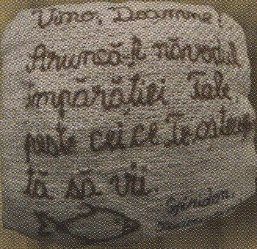 Vino, Doamne!
Aruncă-Ți năvodul
împărăției Tale
peste cei ce Te așteap-
tă să vii.
Spiridon